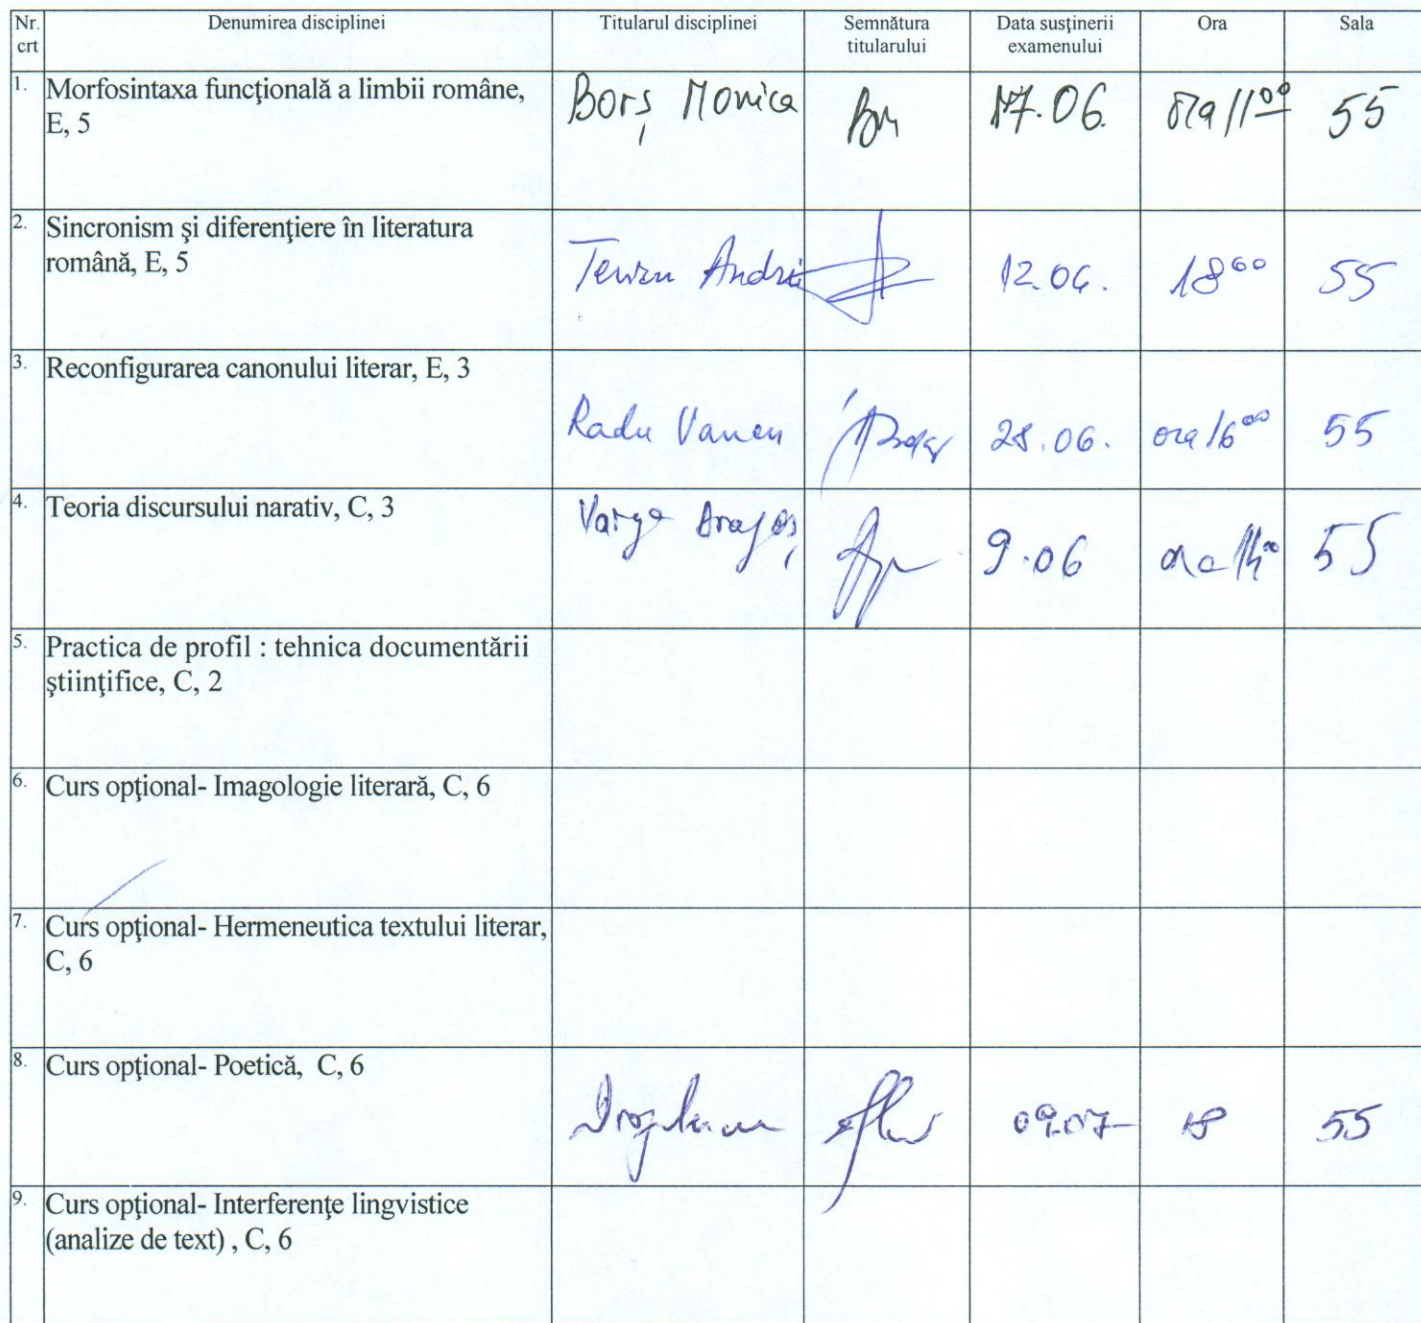 Nr. crt Denumirea disciplinei Titularul disciplinei Semnătura titularului Data susţinerii examenului Ora Sala
1. Morfosintaxa funcţională a limbii române, E, 5 Borş Monica 17.06. ora 11⁰⁰ 55
2. Sincronism şi diferenţiere în literatura română, E, 5 Andrei 12.06. 18⁰⁰ 55
3. Reconfigurarea canonului literar, E, 3 Radu Vancu 28.06. ora 16⁰⁰ 55
4. Teoria discursului narativ, C, 3 Varga Dragoş 9.06 ora 14⁰⁰ 55
5. Practica de profil : tehnica documentării ştiinţifice, C, 2
6. Curs opţional- Imagologie literară, C, 6
7. Curs opţional- Hermeneutica textului literar, C, 6
8. Curs opţional- Poetică, C, 6 09.07 18 55
9. Curs opţional- Interferenţe lingvistice (analize de text) , C, 6